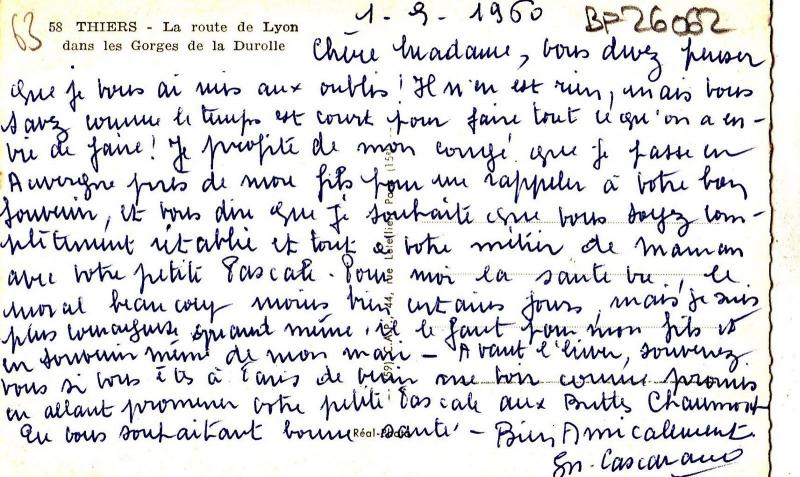 63
58 THIERS - La route de Lyon
dans les Gorges de la Durolle
1-9-1960
BP26062
Chère Madame, vous devez penser
que je vous ai mis aux oublis ! Il n'en est rien, mais vous
savez comme le temps est court pour faire tout ce qu'on a en-
vie de faire ! Je profite de mon congé que je passe en
Auvergne près de mon fils pour me rappeler à votre bon
souvenir, et vous dire que je souhaite que vous soyez com-
plètement rétablie et tout à votre métier de maman
avec votre petite Pascale. Pour moi la santé va, le
moral beaucoup moins bien certains jours, mais je suis
plus courageuse quand même, il le faut pour mon fils et
en souvenir même de mon mari - Avant l'hiver, souvenez
vous si vous êtes à Paris de venir me voir comme promis
en allant promener votre petite Pascale aux Buttes Chaumont
En vous souhaitant bonne santé - Bien Amicalement.
Réal-Photo